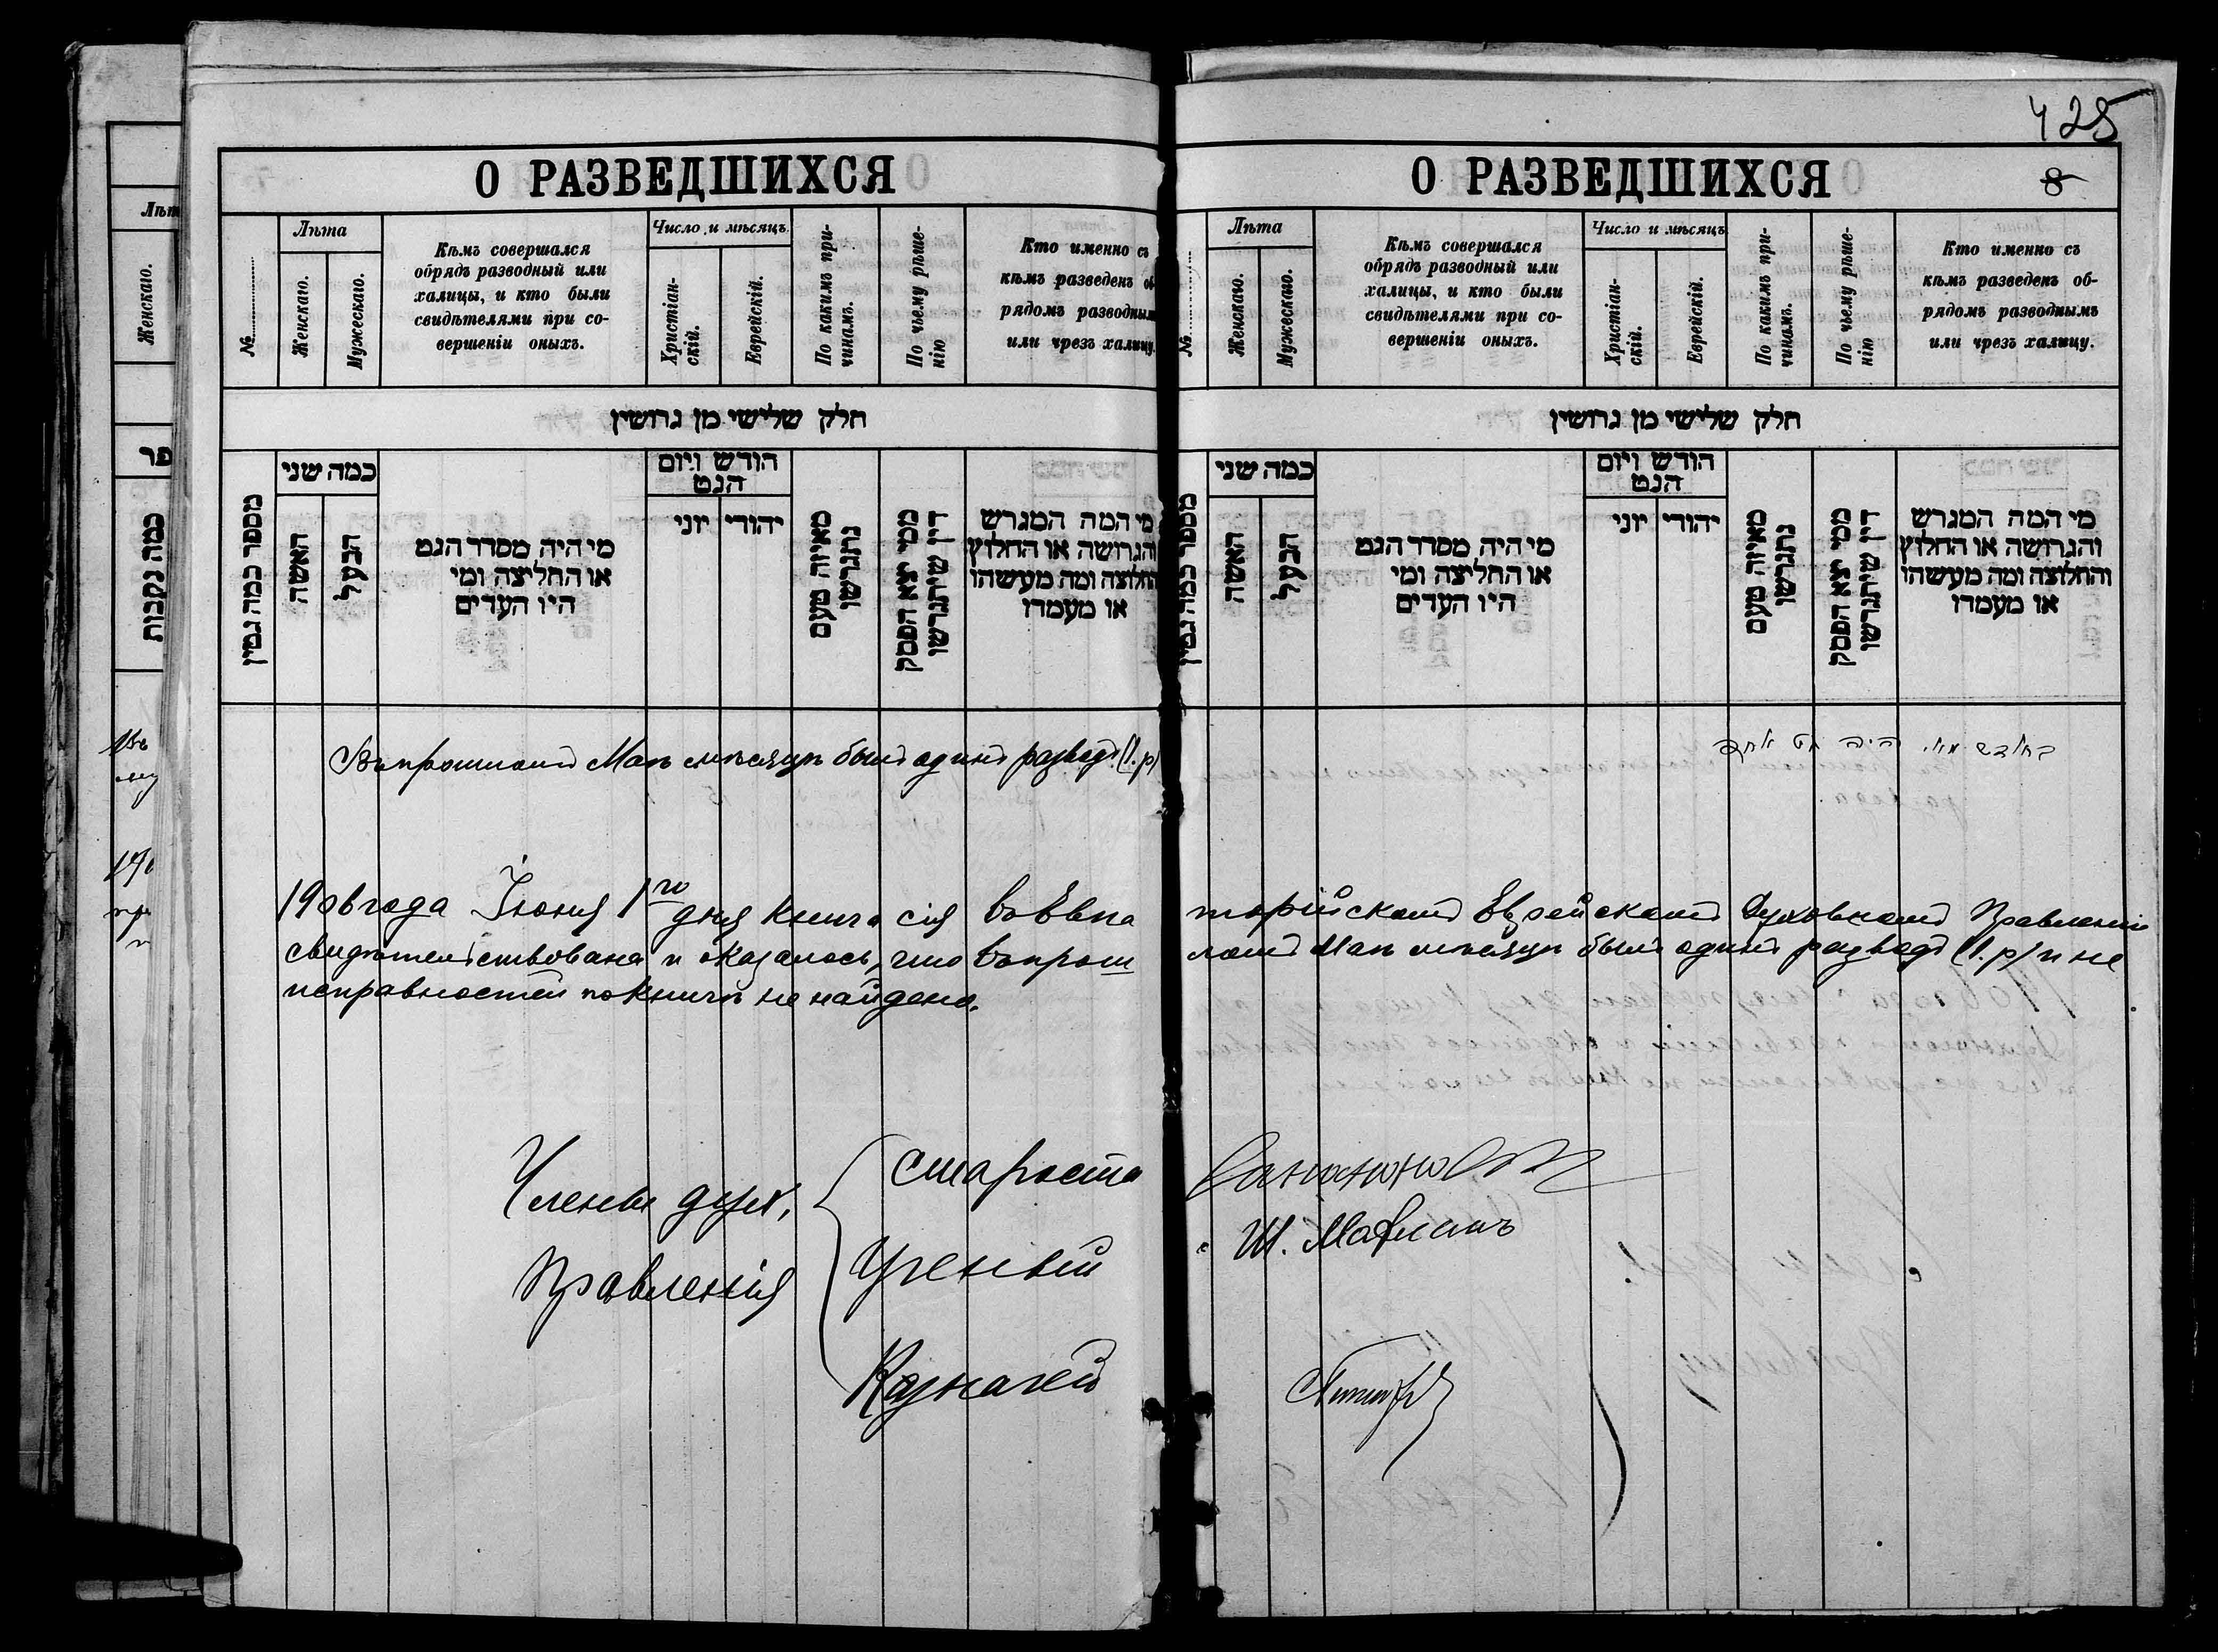 425
О РАЗВЕДШИХСЯ
№
Лѣта
Женскаго.
Мужескаго.
Кѣмъ совершался
обрядъ разводный или
халицы, и кто были
свидѣтелями при со-
вершеніи оныхъ.
Число и мѣсяцъ.
Христіан-
скій.
Еврейскій.
По какимъ при-
чинамъ.
По чьему рѣше-
нію
Кто именно съ
кѣмъ разведенъ об-
рядомъ разводнымъ
или чрезъ халицу.
חלק שלישי מן גרושין
מספר כמה גטין
כמה שני
האשה
הבעל
מי היה מסדר הגט
או החליצה ומי
היו העדים
הודש ויום
הגט
יוני
יהודי
מאיזה טעם
נתגרשו
ממי יצא הפסק
דין שיתגרשו
מי המה המגרש
והגרושה או החלוץ
והחלוצה ומה מעשהו
או מעמדו
О РАЗВЕДШИХСЯ
8
№
Лѣта
Женскаго.
Мужескаго.
Кѣмъ совершался
обрядъ разводный или
халицы, и кто были
свидѣтелями при со-
вершеніи оныхъ.
Число и мѣсяцъ
Христіан-
скій.
Еврейскій.
По какимъ при-
чинамъ.
По чьему рѣше-
нію
Кто именно съ
кѣмъ разведенъ об-
рядомъ разводнымъ
или чрезъ халицу.
חלק שלישי מן גרושין
מספר כמה גטין
כמה שני
האשה
הבעל
מי היה מסדר הגט
או החליצה ומי
היו העדים
הודש ויום
הגט
יוני
יהודי
מאיזה טעם
נתגרשו
ממי יצא הפסק
דין שיתגרשו
מי המה המגרש
והגרושה או החלוץ
והחלוצה ומה מעשהו
או מעמדו
Лѣт
Женскаго.
פר
כמה נקבות
Въ прошломъ Маѣ мѣсяцѣ былъ одинъ разводъ (1. р)
בחדש מאי היה גט אחד
1906 года Іюня 1го дня книга сія въ Евпа торійскомъ Еврейскомъ Духовномъ Правленіи
свидѣтельствована и оказалось, что въ прош ломъ Маѣ мѣсяцѣ былъ одинъ разводъ (1. р) и не
исправностей по книгѣ не найдено.
Члены дух.
Правленія
Староста
Ученый
Ш.
Казначей